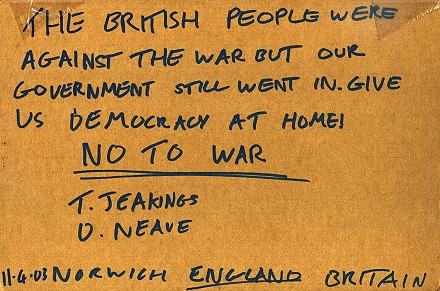 THE BRITISH PEOPLE WERE
AGAINST THE WAR BUT OUR
GOVERNMENT STILL WENT IN. GIVE
US DEMOCRACY AT HOME!
NO TO WAR
T. JEAKINGS
D. NEAVE
11.4.03 NORWICH ENGLAND BRITAIN